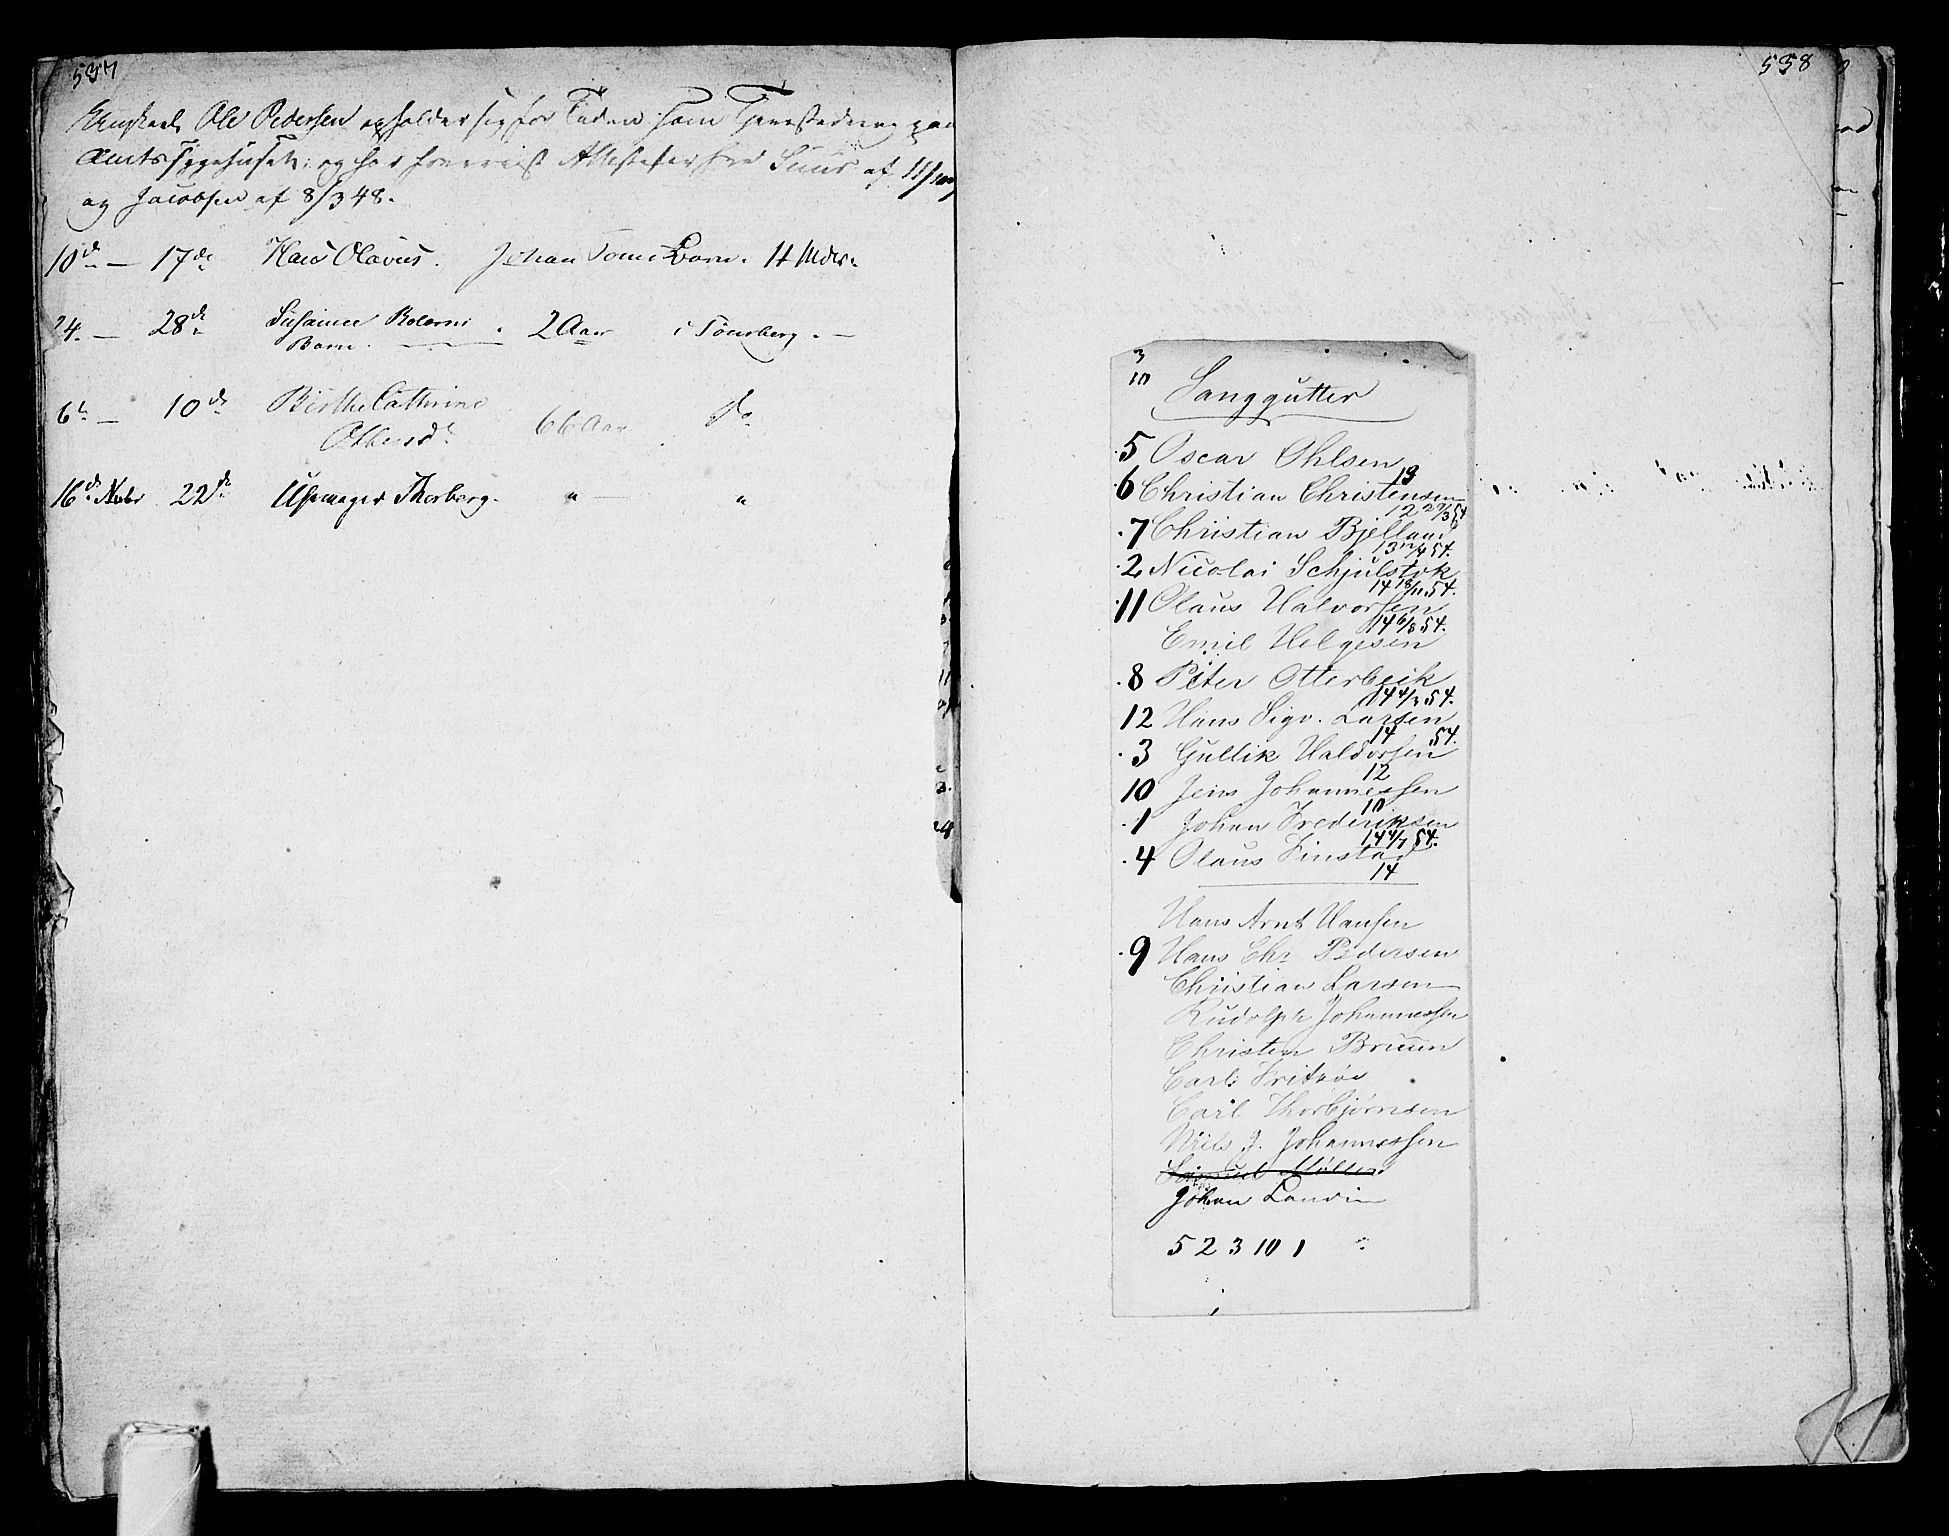 537
Ole Pedersen opholder sig for Tiden som
Amts Sygehuset: og har Attester fra af 11/
og Jacobsen af 8/3 48.
10de — 17de Hans Olavus. Johan Barn. 11 Mdr.
24. — 28de Barn. 2 Aar i Tönsberg. —
6te — 10de Birthe Cathrine
66 Aar do
16de Novbr 22de Thorberg. " — "
538
3
10
Sanggutter
5 Oscar Ohlsen
13
6 Christian Christensen
12 27/3 54
7 Christian Bjelland
13 12/4 54.
2 Nicolai Schjulstok
14 18/11 54.
11 Olaus Halvorsen
14 6/8 54.
Emil Helgesen
8 Peter Otterbeck
14 4/3 54.
12 Hans Sigv. Larsen
14 54.
3 Gullik Haldorsen
12
10 Jens Johannessen
10
1 Johan Frederiksen
14 4/7 54.
4 Olaus Finstad
14
Hans Arnt Hansen
9 Hans Chr Pedersen
Christian Larsen
Rudolph Johannessen
Christen Bruun
Carl Fritzöe
Carl Thorbjörnsen
Niels J. Johannessen
Samuel Möller
Johan Landin
5 2 3 10 1